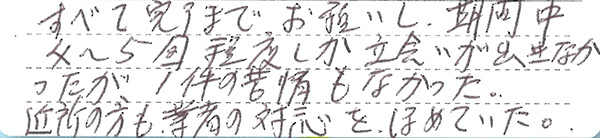 すべて完了までお願いし、期間中
4～5回程度しか立会いが出来なか
ったが、1件の苦情もなかった。
近所の方も、業者の対応を、ほめていた。